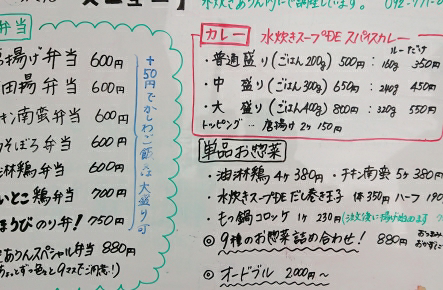 メニュー】
弁当
揚げ弁当 600円
田揚弁当 600円
キン南蛮弁当 600円
そぼろ弁当 600円
油淋鶏弁当 600円
いとこ鶏弁当 700円
ほうびのり弁! 750円
ありんスペシャル弁当 880円
+50円でかしわご飯 大盛り可
092-771-0
カレー 水炊きスープDE スパイスカレー
ルーだけ
・普通盛り(ごはん200g) 500円: 160g 350円
・中 盛り(ごはん300g) 650円: 240g 450円
・大 盛り(ごはん400g) 800円: 320g 550円
トッピング… 唐揚げ 2ケ 150円
単品お惣菜
・油淋鶏 4ヶ 380円 ・チキン南蛮 5ヶ 380円
・水炊きスープDE だし巻き玉子 1本 350円 ハーフ 190
・もつ鍋コロッケ 1ヶ 230円(注文後に揚げ始めます
◎9種のお惣菜詰め合わせ! 880円
◎オードブル 2000円〜